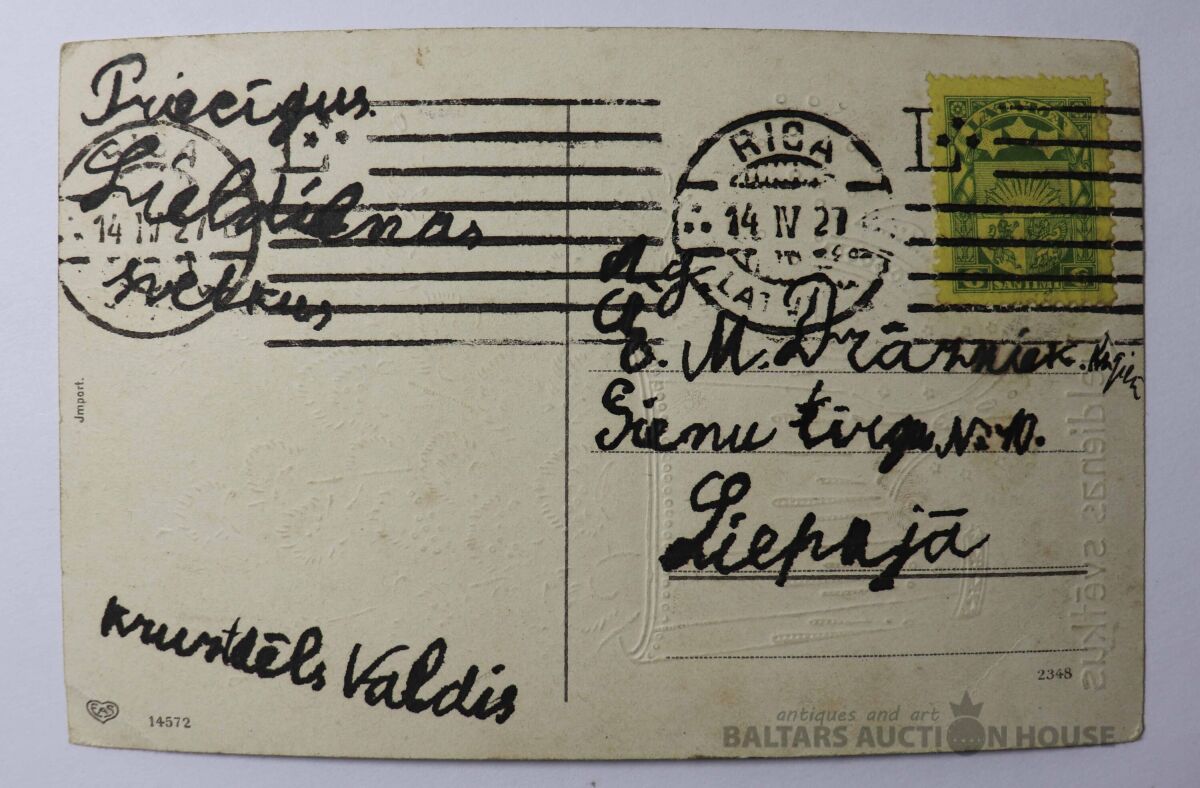 Priecīgus
Lieldienas
svētkus
krustdēls Valdis
Jmport.
EAS
14572
RIGA
14 IV 27
L
RIGA
14 IV 27
LATV
L
LATVIJA
6 SANTIMI 6
A. g.
E. M. Drāzniek.
Sienu tirgu N: 10.
Liepajā
2348
antiques and art
BALTARS AUCTION HOUSE